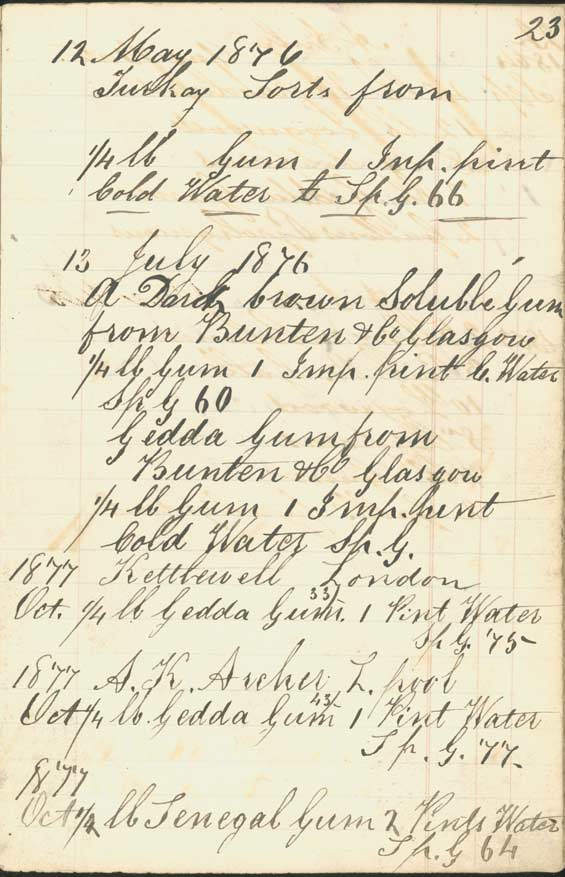 23
12 May 1876
Turkay Sorts from
1/4 lb Gum 1 Imp. pint
Cold Water to Sp. G. 66
13 July 1876
A Dark brown Soluble Gum
from Bunten & Co Glasgow
1/4 lb Gum 1 Imp. pint C. Water
Sp G 60
Gedda Gum from
Bunten & Co Glasgow
1/4 lb Gum 1 Imp. pint
Cold Water Sp. G.
1877 Kettlewell London
33/
Oct. 1/4 lb Gedda Gum. 1 Pint Water
Sp G. 75
1877 A. K. Archer L. pool
43/
Oct 1/4 lb. Gedda Gum 1 Pint Water
Sp. G. 77
1877
Oct 1/2 lb Senegal Gum 2 Pints Water
Sp. G 64